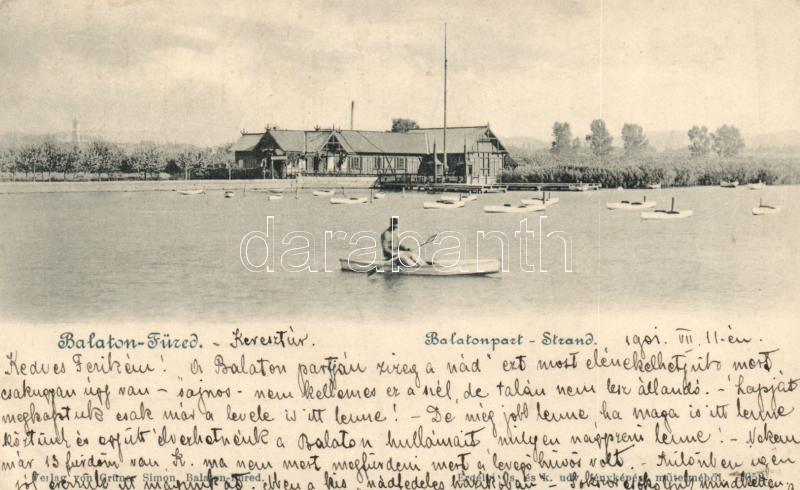 darabanth
Balaton-Füred. - Keresztúr. Balatonpart - Strand. 1901. VII. 11-én.
Kedves Ferikém! A Balaton partján zizeg a nád" ezt most elénekelhetjük mert
csakugyan úgy van - sajnos - nem kellemes ez a szél, de talán nem lesz állandó. - Lapját
megkaptuk csak már a levele is itt lenne! - De még jobb lenne ha maga is itt lenne
köztünk és együtt élvezhetnénk a Balaton hullámait milyen nagyszerű lenne! - Nekem
már 13 fürdőm van, K. ma nem mert megfürdeni mert a levegő hűvös volt. Különben igen
Verlag von Grüner Simon, Balaton-Füred. Erdélyi cs. és k. udv. fényképész műterméből.
jól érezzük itt magunkat ebben a kis nádfedeles